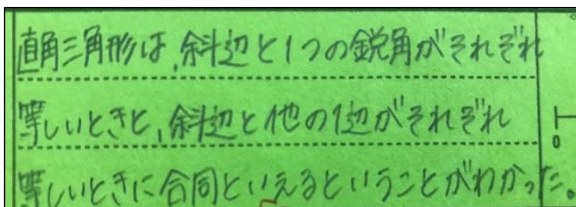 直角三角形は、斜辺と1つの鋭角がそれぞれ
等しいときと、斜辺と他の1辺がそれぞれ
等しいときに合同といえるということがわかった。